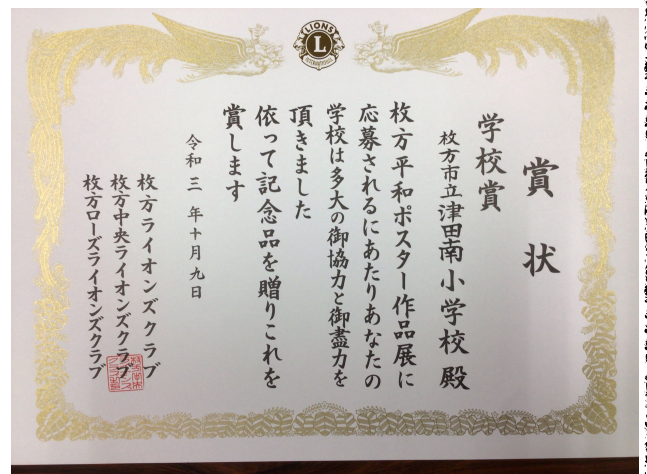 LIONS
L
INTERNATIONAL
賞状
学校賞
枚方市立津田南小学校殿
枚方平和ポスター作品展に
応募されるにあたりあなたの
学校は多大の御協力と御盡力を
頂きました
依って記念品を贈りこれを
賞します
令和三年十月九日
枚方ライオンズクラブ
枚方中央ライオンズクラブ
枚方ローズライオンズクラブ